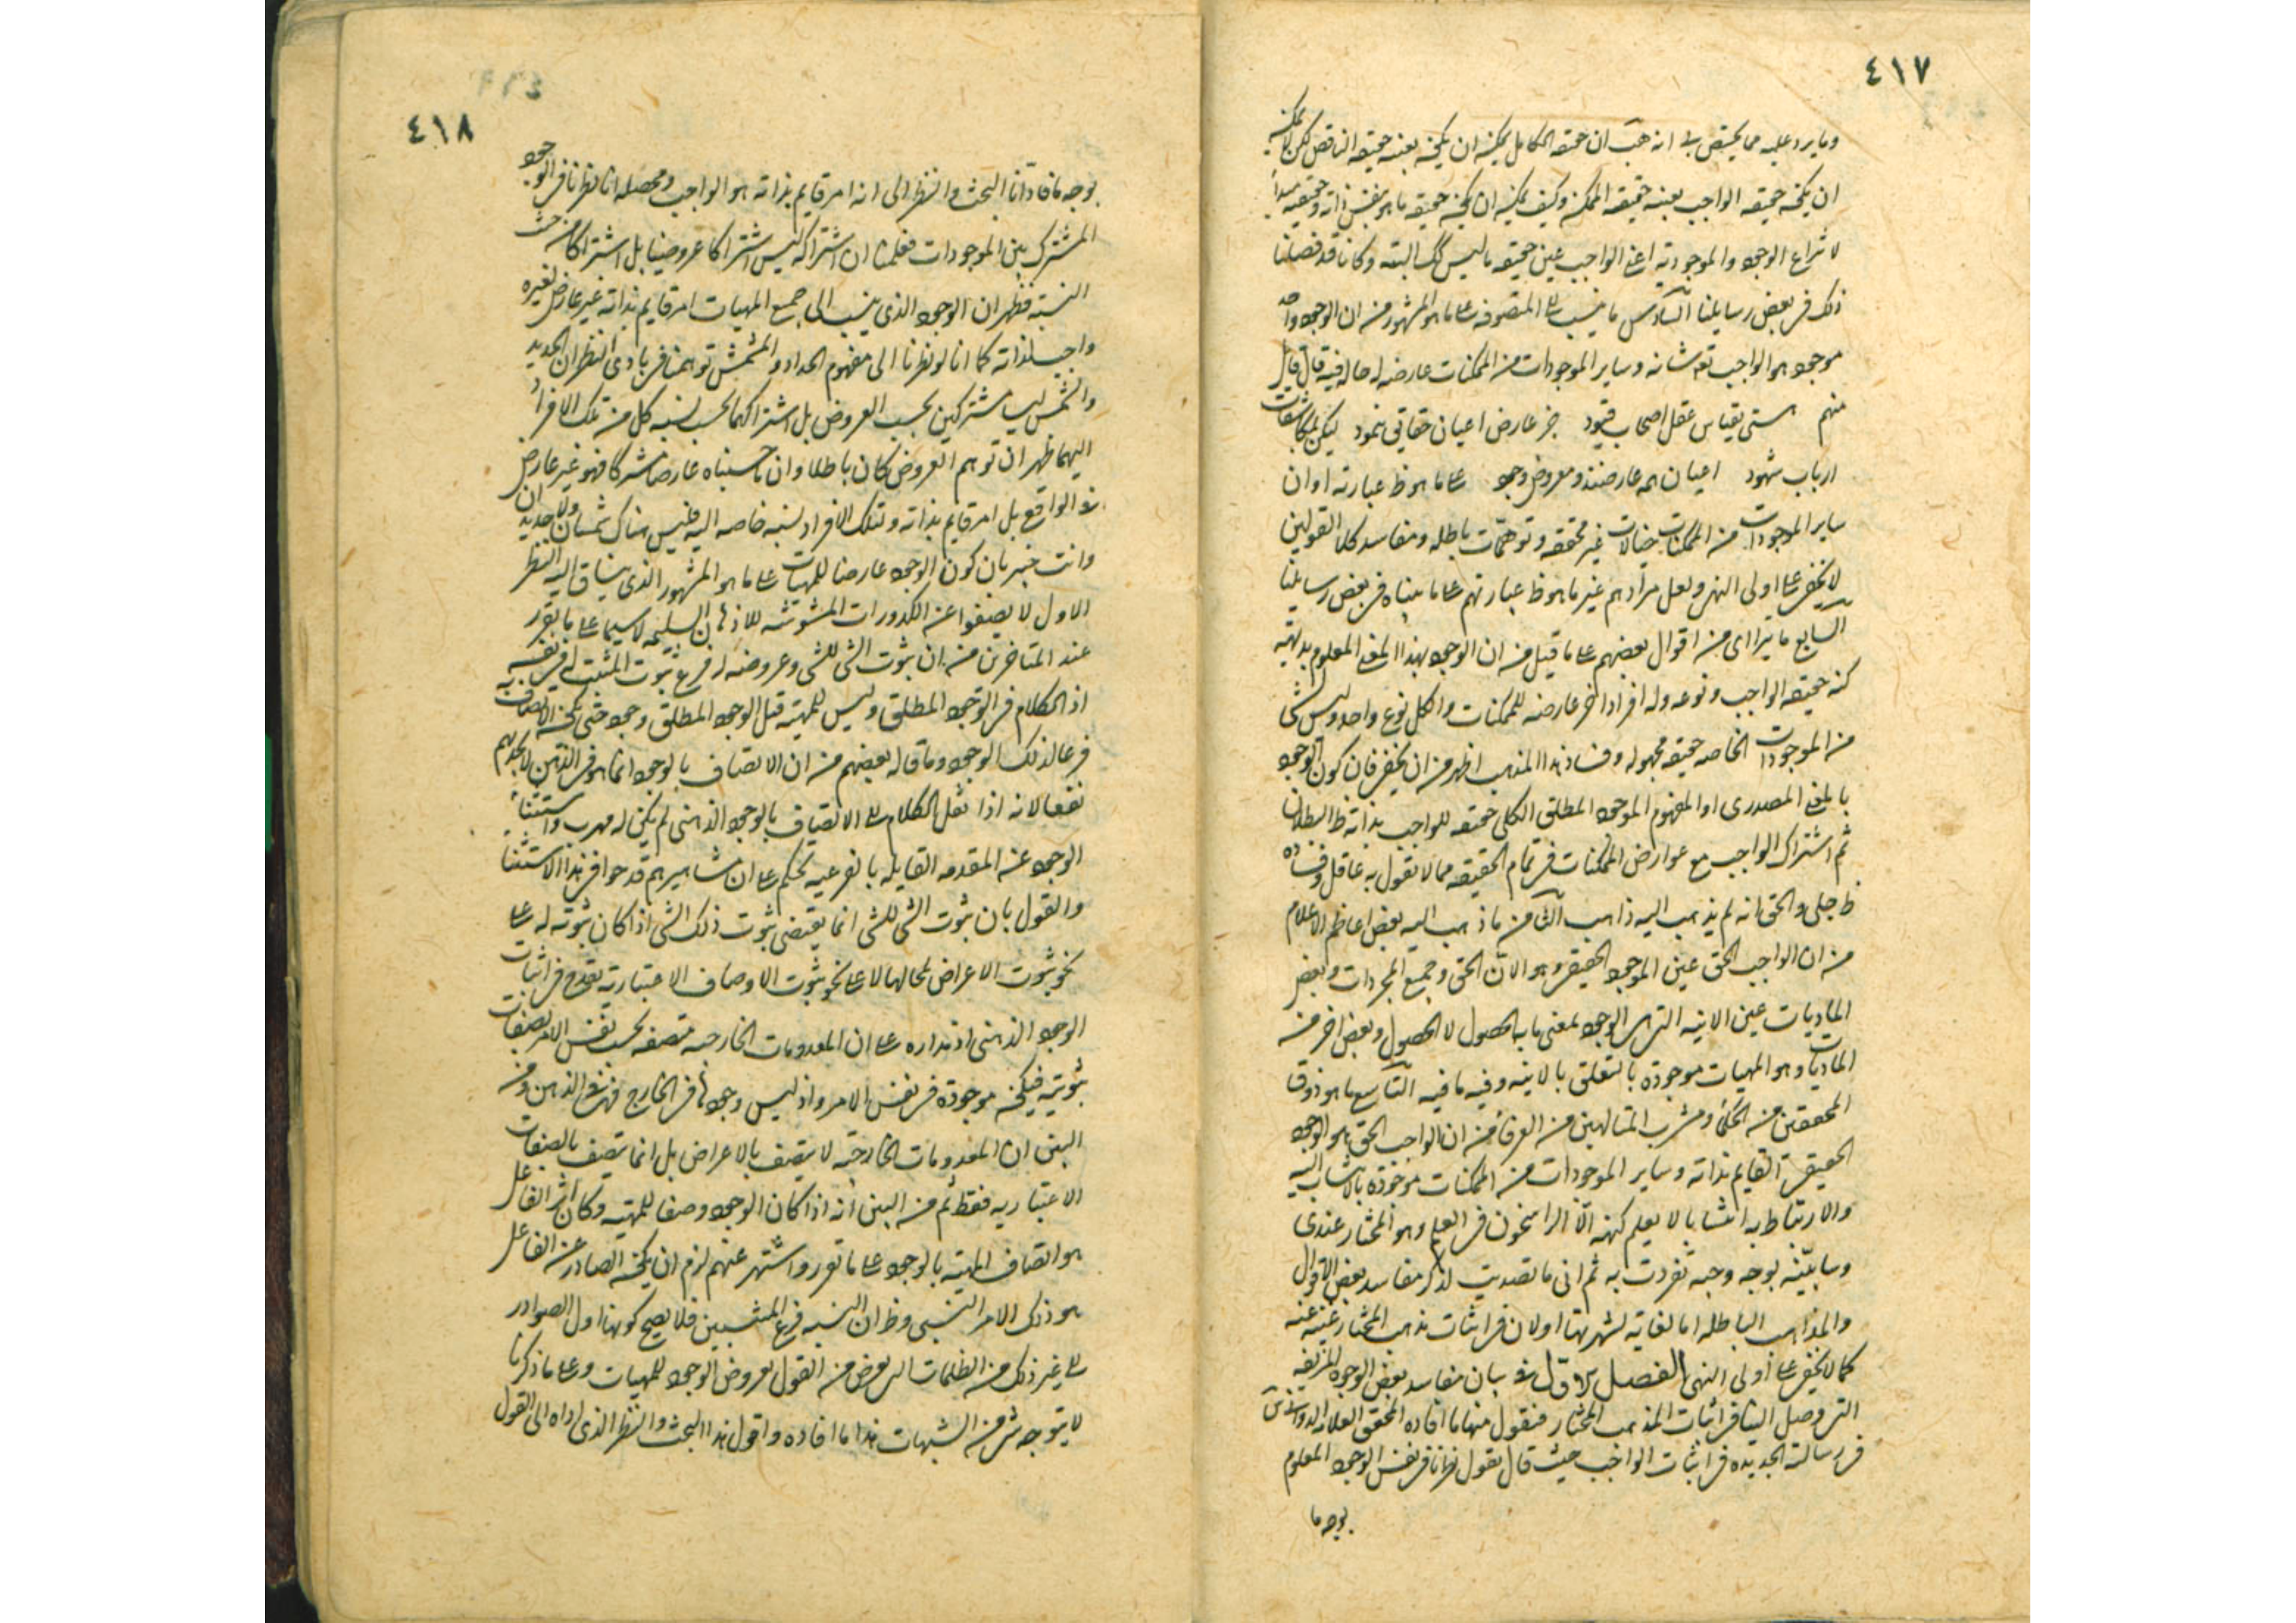 ٤١٧
وما يرد عليه مما يختص به انه هب ان حقيقه الكامل يمكن ان يكون بعينه حقيقه الناقص لكن لا يمكن
ان يكون حقيقه الواجب بعينه حقيقه الممكن وكيف يمكن ان يكون حقيقه ما هو بنفس ذاته وحقيقته مبدأ
لانتزاع الوجود والموجوديه اعنى الواجب عين حقيقه ما ليس كك البته وكانا قد فصلنا
ذلك فى بعض رسايلنا السادس ما ينسب الى المتصوفه على ما هو المشهور من ان الوجود واحد
موجود هو الواجب تع شانه وساير الموجودات من الممكنات عارضه له حاله فيه قال قايل
منهم هستى بقياس عقل اصحاب قيود جز عارض اعيان حقايق ننمود ليكن بمكاشفات
ارباب شهود اعيان همه عارضند ومعروض وجود على ما هو ظ عبارته او ان
ساير الموجودات من الممكنات خيالات غير محققه وتوهمات باطله ومفاسد كلا القولين
لا يخفى على اولى النهى ولعل مرادهم غير ما هو ظ عبارتهم على ما بيناه فى بعض رسايلنا
السابع ما يتراءى من اقوال بعضهم على ما قيل من ان الوجود بهذا المعنى المعلوم بديهه
كنه حقيقه الواجب ونوعه وله افراد اخر عارضه للممكنات والكل نوع واحد وليس لشى
من الموجودات الخاصه حقيقه مجهوله وفساد هذا المذهب اظهر من ان يخفى فان كون الوجود
بالمعنى المصدرى او المفهوم الموجود المطلق الكلى حقيقه للواجب بذاته ظ البطلان
ثم اشتراك الواجب مع عوارض الممكنات فى تمام الحقيقه مما لا يقول به عاقل وفساده
ظ جلى والحق انه لم يذهب اليه ذاهب الثامن ما ذهب اليه بعض اعاظم الاعلام
من ان الواجب الحق عين الموجود الحقيقى وهو الان الحق وجميع المجردات وبعض
الماديات عين الانيه التى هى الوجود بمعنى ما به الحصول لا الحصول وبعض اخر من
الماديات وهو المهيات موجوده بالتعلق بالانيه وفيه ما فيه التاسع ما هو ذوق
المحققين من الحكماء ومشرب المتالهين من العرفاء من ان الواجب الحق هو الوجود
الحقيقى القايم بذاته وساير الموجودات من الممكنات موجوده بالانتساب اليه
والارتباط به انتسابا لا يعلم كنهه الا الراسخون فى العلم وهو المختار عندى
وسابينه بوجه وجيه تفردت به ثم انى ما تصديت لذكر مفاسد بعض الاقوال
والمذاهب الباطله اما لغايه لشهرتها او لان فى اثبات مذهب المختار غنيه عنه
كما لا يخفى على اولى النهى الفصل الاول فى بيان مفاسد بعض الوجوه المزيفه
التى وصل الينا فى اثبات المذهب المختار فنقول منها ما افاده المحقق العلامه الدوانى
فى رسالته الجديده فى اثبات الواجب حيث قال نقول نظرنا فى نفس الوجود المعلوم
بوجه ما
٤١٨
بوجه ما فادانا البحث والنظر الى انه امر قايم بذاته هو الواجب ومحصله انا نظرنا فى الوجود
المشترك بين الموجودات فعلمنا ان اشتراكه ليس اشتراكا عروضيا بل اشتراكا من حيث
النسبه فظهر ان الوجود الذى ينسب الى جميع المهيات امر قايم بذاته غير عارض لغيره
واجب لذاته كما انا لو نظرنا الى مفهوم الحداد والمشمش توهمنا فى بادى النظر ان الحديد
والشمس ليسا مشتركين بحسب العروض بل اشتراكهما بحسب نسبه كل من تلك الافراد
اليهما ظهر ان توهم العروض كان باطلا وان ما حسبناه عارضا مشتركا فهو غير عارض
فى الواقع بل امر قايم بذاته ولتلك الافراد نسبه خاصه اليه فليس هناك شمسان ولا حديدان
وانت خبير بان كون الوجود عارضا للمهيات على ما هو المشهور الذى ينساق اليه النظر
الاول لا يصفوا عن الكدورات المشوشه للاذهان السليمه لا سيما على ما تقرر
عند المتاخرين من ان ثبوت الشى للشى وعروضه له فرع ثبوت المثبت له فى نفسه
اذ الكلام فى الوجود المطلق وليس للمهيه قبل الوجود المطلق وجود حتى يكون الاتصاف به
فرعا لذلك الوجود وما قاله بعضهم من ان الاتصاف بالوجود انما هو فى الذهن لا يجديهم
نفعا لانه اذا نقل الكلام الى الاتصاف بالوجود الذهنى لم يكن له مهرب واستثناء
الوجود عن المقدمه القايله بالفرعيه تحكم على ان مشاهيرهم قدحوا فى هذا الاستثناء
والقول بان ثبوت الشى للشى انما يقتضى ثبوت ذلك الشى اذا كان ثبوته له على
نحو ثبوت الاعراض لمحالها لا على نحو ثبوت الاوصاف الاعتباريه يقدح فى اثبات
الوجود الذهنى اذ مداره على ان المعدومات الخارجيه متصفه بحسب نفس الامر بصفات
ثبوتيه فيكون موجوده فى نفس الامر واذ ليس وجودها فى الخارج فهو فى الذهن ومن
البين ان المعدومات الخارجيه لا يتصف بالاعراض بل انما يتصف بالصفات
الاعتباريه فقط ثم من البين انه اذا كان الوجود وصفا للمهيه وكان اثر الفاعل
هو اتصاف المهيه بالوجود على ما تقرر واشتهر عنهم لزم ان يكون الصادر عن الفاعل
هو ذلك الامر النسبى وظ ان النسبه فرع المنتسبين فلا يصح كونها اول الصوادر
الى غير ذلك من الظلمات التى تعرض من القول بعروض الوجود للمهيات وعلى ما ذكرنا
لا يتوجه شى من الشبهات هذا ما افاده واقول هذا البحث والنظر الذى اداه الى القول